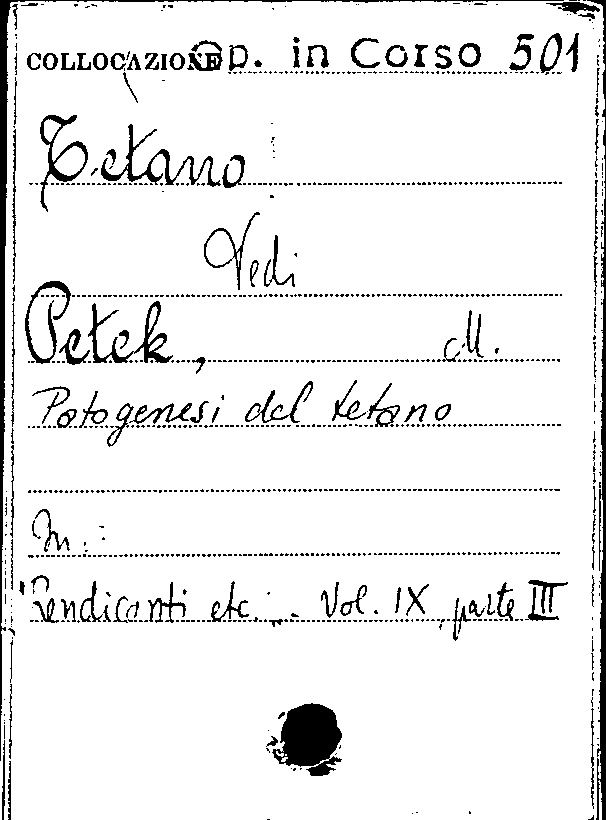 COLLOCAZIONE Op. in Corso 501
Tetano
Vedi
Petek, M.
Patogenesi del tetano
In:
Rendiconti etc... Vol. IX, parte III